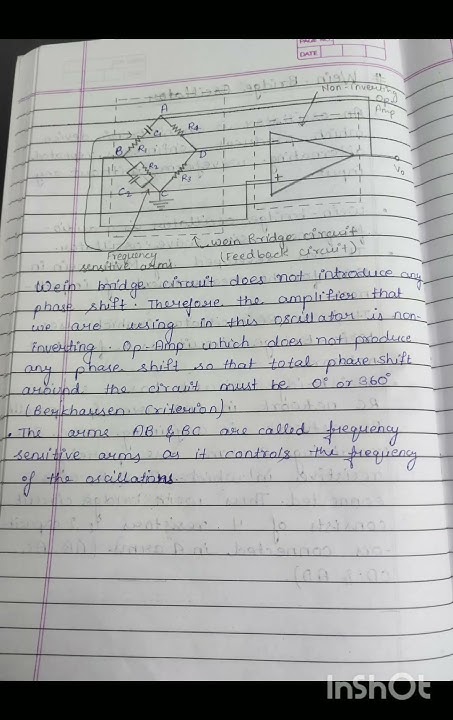 PAGE No.
DATE
Non-Inverting
Op
Amp
A
C1
R4
B
R1
D
R2
C2
R3
C
-
+
Vo
Wein Bridge circuit
(Feedback circuit)
Frequency
sensitive arms
Wein bridge circuit does not introduce any
phase shift. Therefore the amplifier that
we are using in this oscillator is non-
inverting. Op-Amp which does not produce
any phase shift so that total phase shift
around the circuit must be 0° or 360°
(Berkhausen Criterion)
• The arms AB & BC are called frequency
sensitive arms as it controls the frequency
of the oscillations.
InShOt